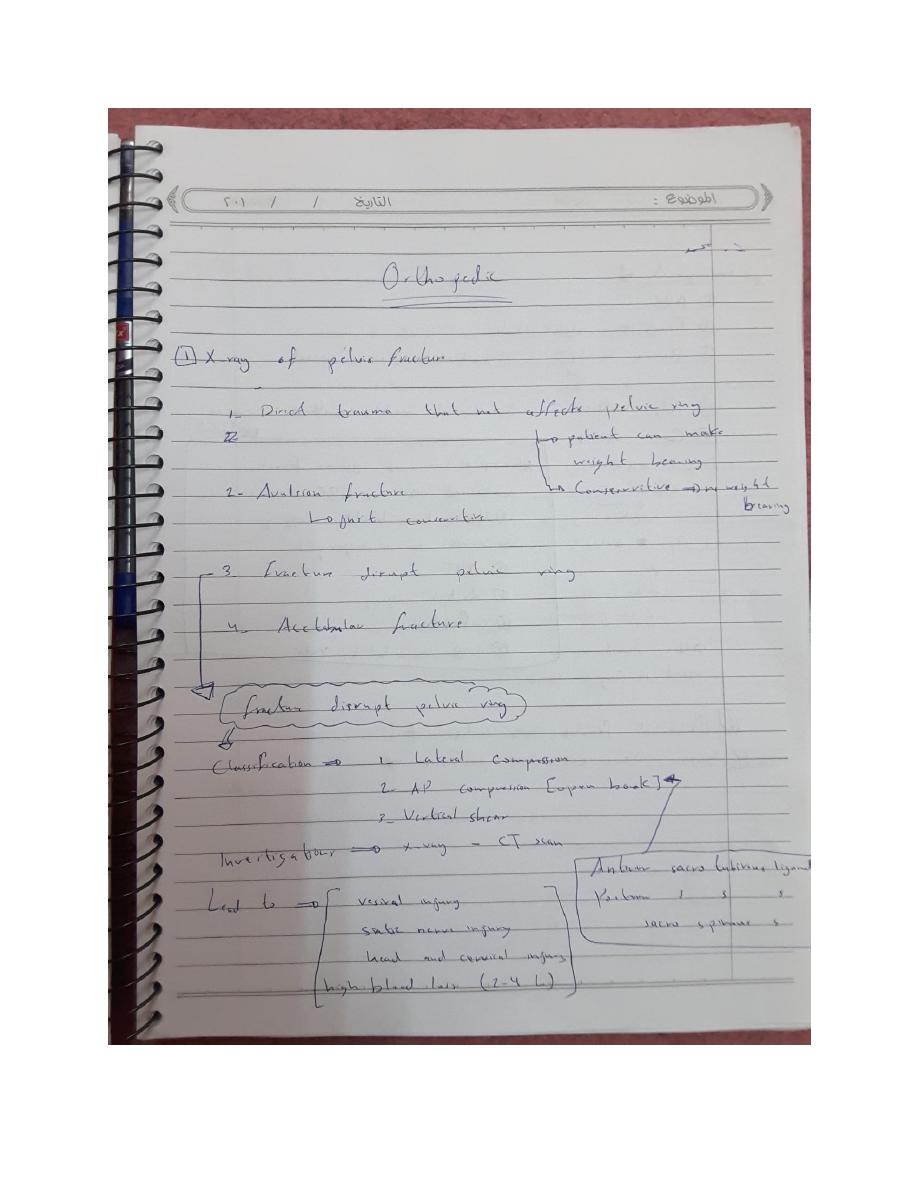 الموضوع :        التارية    /    /    ٢٠١
Orthopedic
1 X ray of pelvic fracture
1- Direct trauma that not affects pelvic ring
↳ patient can make
weight bearing
↳ Conservitive ⇒ no weight
bearing
2- Avulsion fracture
↳ just conservitive
3- fracture disrupt pelvic ring
4- Acetabular fracture
fracture disrupt pelvic ring
Classification ⇒ 1- Lateral compression
2- AP compression [open book]
3- Vertical shear
Investigations ⇒ x-ray - CT scan
Anterior sacro tuberous ligam
Posterior
sacro spinous
Lead to ⇒ vesical injury
sciatic nerve injury
head and cervical injury
high blood loss (2-4 L)